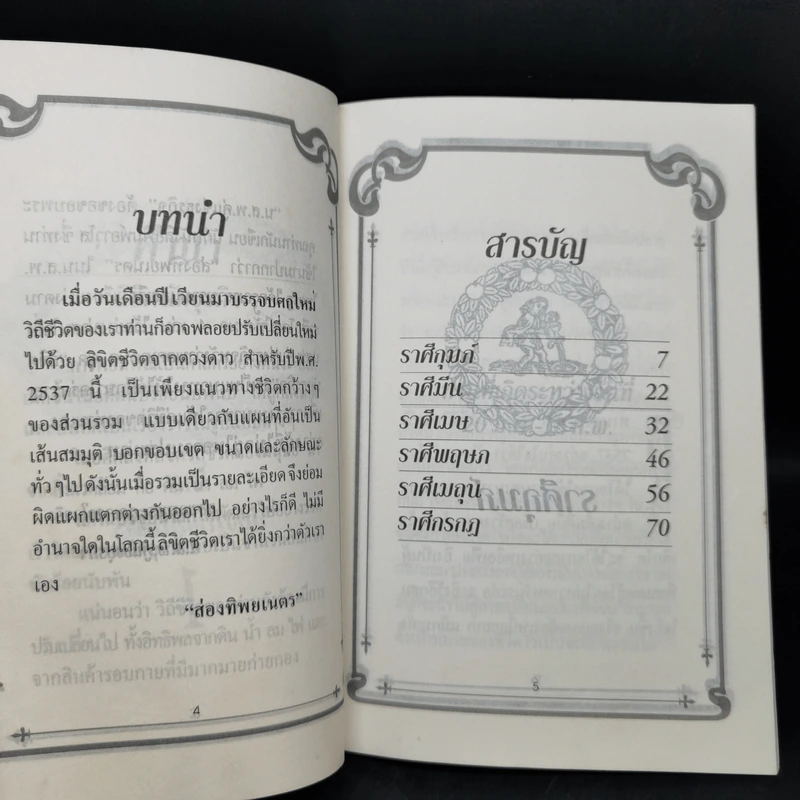 บทนำ
เมื่อวันเดือนปีเวียนมาบรรจบศกใหม่
วิถีชีวิตของเราท่านก็อาจพลอยปรับเปลี่ยนใหม่
ไปด้วย ลิขิตชีวิตจากดวงดาว สำหรับปีพ.ศ.
2537 นี้ เป็นเพียงแนวทางชีวิตกว้างๆ
ของส่วนรวม แบบเดียวกับแผนที่อันเป็น
เส้นสมมุติ บอกขอบเขต ขนาดและลักษณะ
ทั่วๆไป ดังนั้นเมื่อรวมเป็นรายละเอียด จึงย่อม
ผิดแผกแตกต่างกันออกไป อย่างไรก็ดี ไม่มี
อำนาจใดในโลกนี้ ลิขิตชีวิตเราได้ยิ่งกว่าตัวเรา
เอง
“ส่องทิพยเนตร”
4
สารบัญ
ราศีกุมภ์ 7
ราศีมีน 22
ราศีเมษ 32
ราศีพฤษภ 46
ราศีเมถุน 56
ราศีกรกฎ 70
5